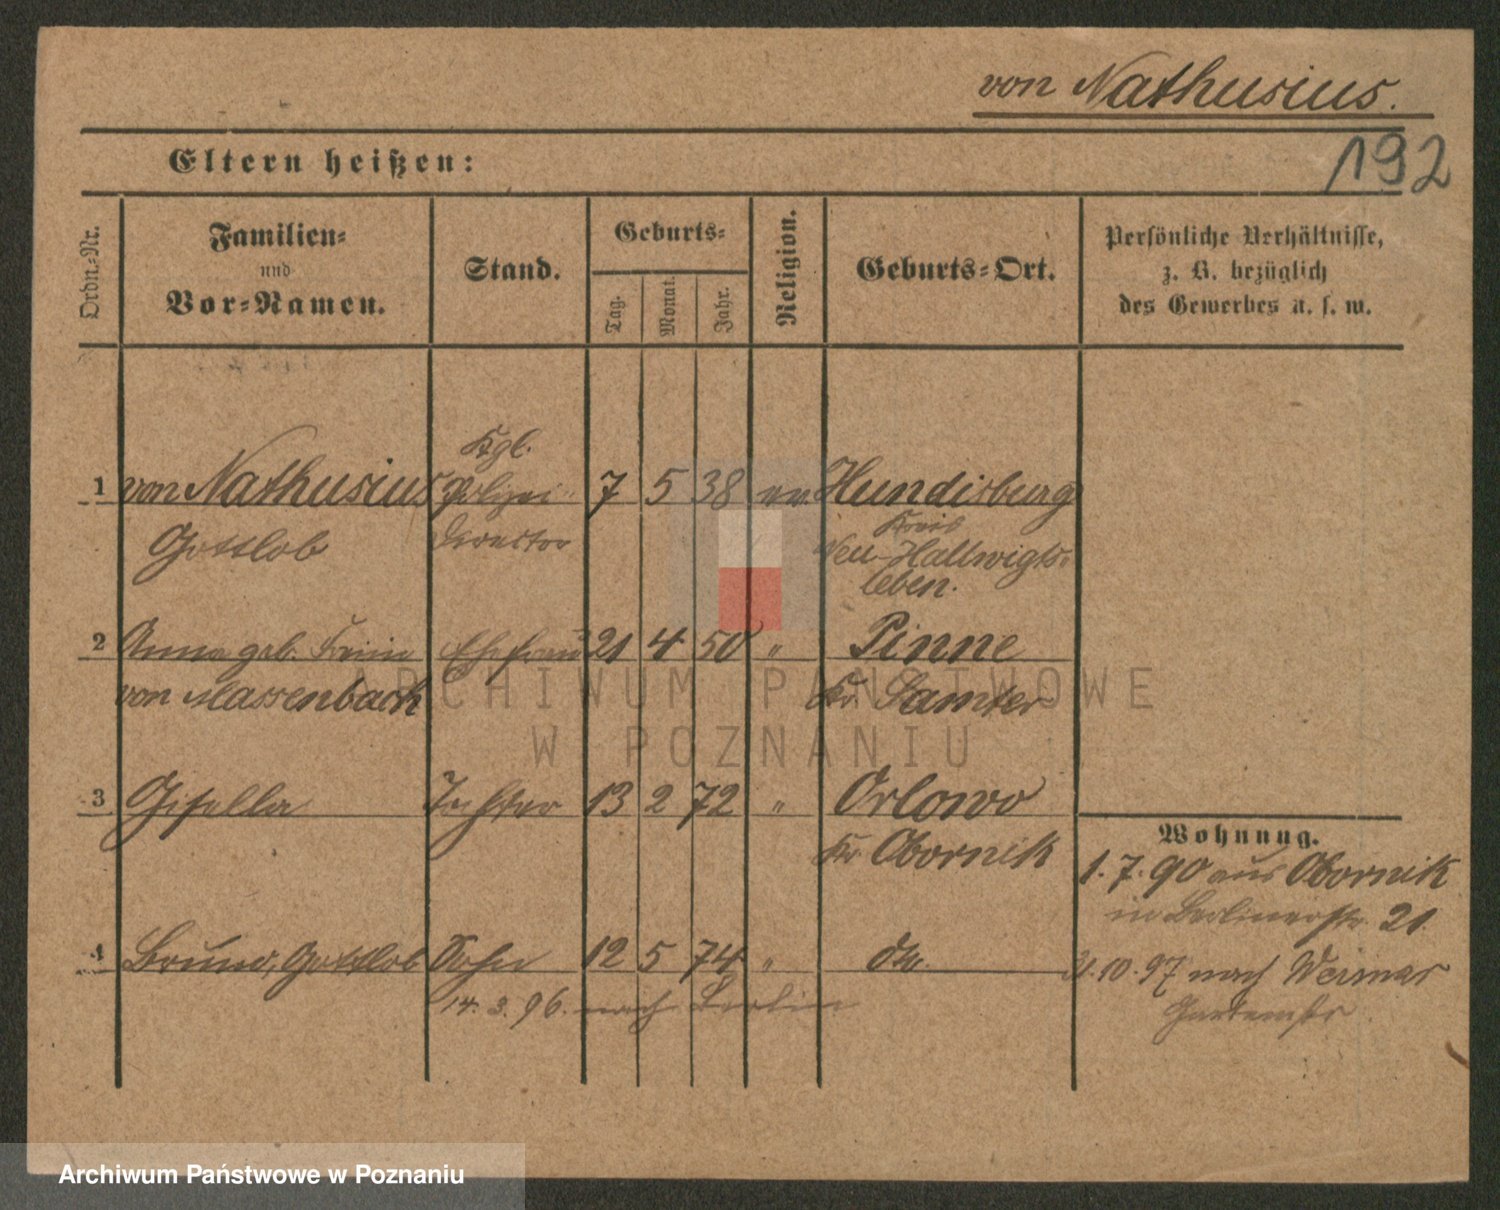 von Nathusius.
192
Eltern heißen:
Ordn.-Nr.
Familien-
und
Vor-Namen.
Stand.
Geburts-
Tag.
Monat.
Jahr.
Religion.
Geburts-Ort.
Persönliche Verhältnisse,
z. B. bezüglich
des Gewerbes u. s. w.
Kgl.
1 von Nathusius Polizei- 7 5 38 ev. Hundisburg
Gottlob Director Kreis
Neu-Hallwigts-
leben.
2 Anna geb. Freiin Ehefrau 21 4 50 " Pinne
von Massenbach Kr. Samter
3 Gisella Tochter 13 2 72 " Orlowo
Kr. Obornik
4 Bruno, Gottlob Sohn 12 5 74 " do.
14. 3. 96. nach Berlin
Wohnung.
1. 7. 90 aus Obornik
in Berlinerstr. 21.
31. 10. 97 nach Weimar
Gartenstr.
ARCHIWUM PAŃSTWOWE
W POZNANIU
Archiwum Państwowe w Poznaniu